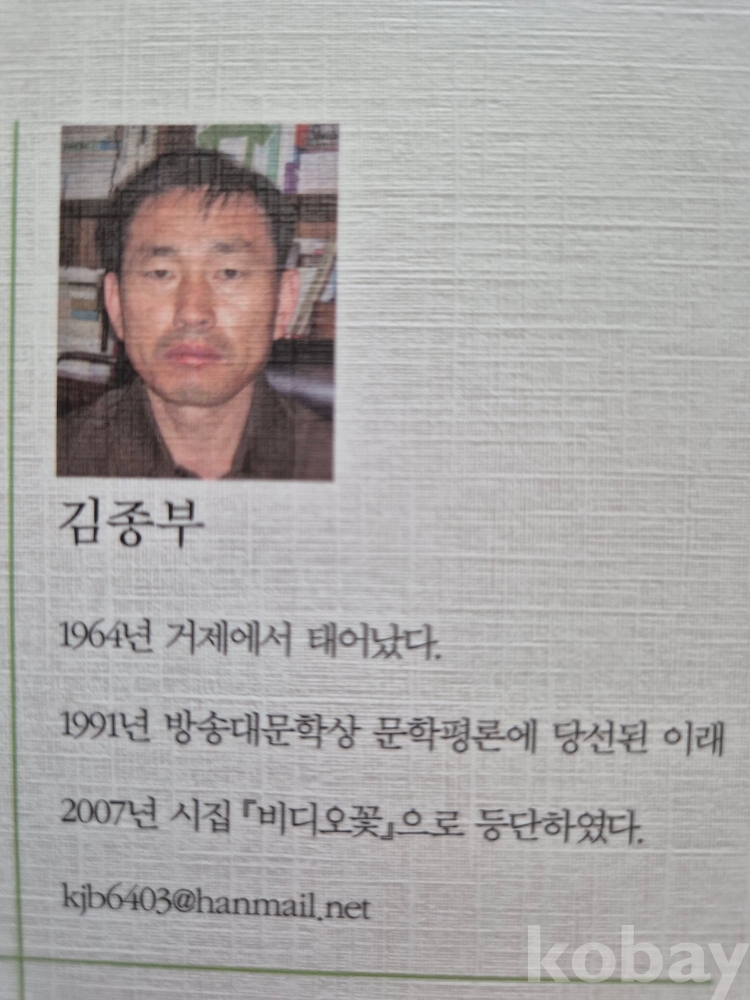 김종부
1964년 거제에서 태어났다.
1991년 방송대문학상 문학평론에 당선된 이래
2007년 시집 『비디오꽃』으로 등단하였다.
kjb6403@hanmail.net
kobay